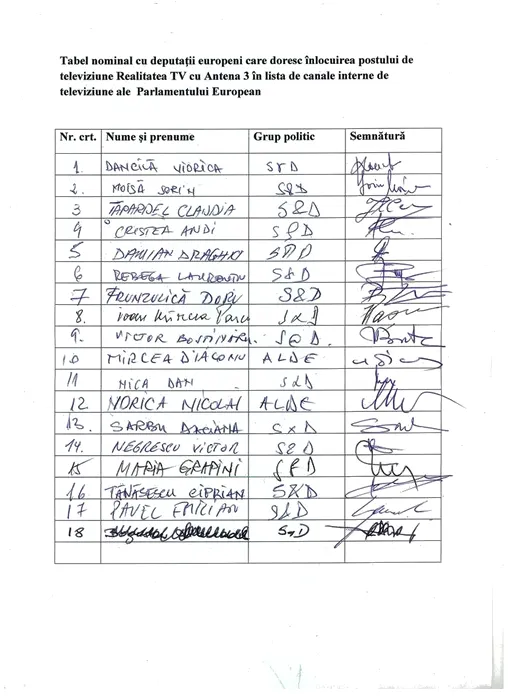 Tabel nominal cu deputații europeni care doresc înlocuirea postului de
televiziune Realitatea TV cu Antena 3 în lista de canale interne de
televiziune ale Parlamentului European
Nr. crt. Nume și prenume Grup politic Semnătură
1. DANCILĂ VIORICA S&D
2. MOISĂ SORIN S&D
3 TAPARDEL CLAUDIA S&D
4 CRISTEA ANDI S&D
5 DAMIAN DRAGHICI S&D
6 REBEGA LAURENTIU S&D
7 FRUNZULICĂ DORU S&D
8. Ioan Mircea Pașcu S&D
9. VICTOR BOSTINARU S&D.
10 MIRCEA DIACONU ALDE
11 NICA DAN S&D
12 NORICA NICOLAI ALDE
13. SARBU DACIANA S&D
14. NEGRESCU VICTOR S&D
15 MARIA GRAPINI S&D
16 TĂNĂSESCU CIPRIAN S&D
17 PAVEL EMILIAN S&D
18 S&D